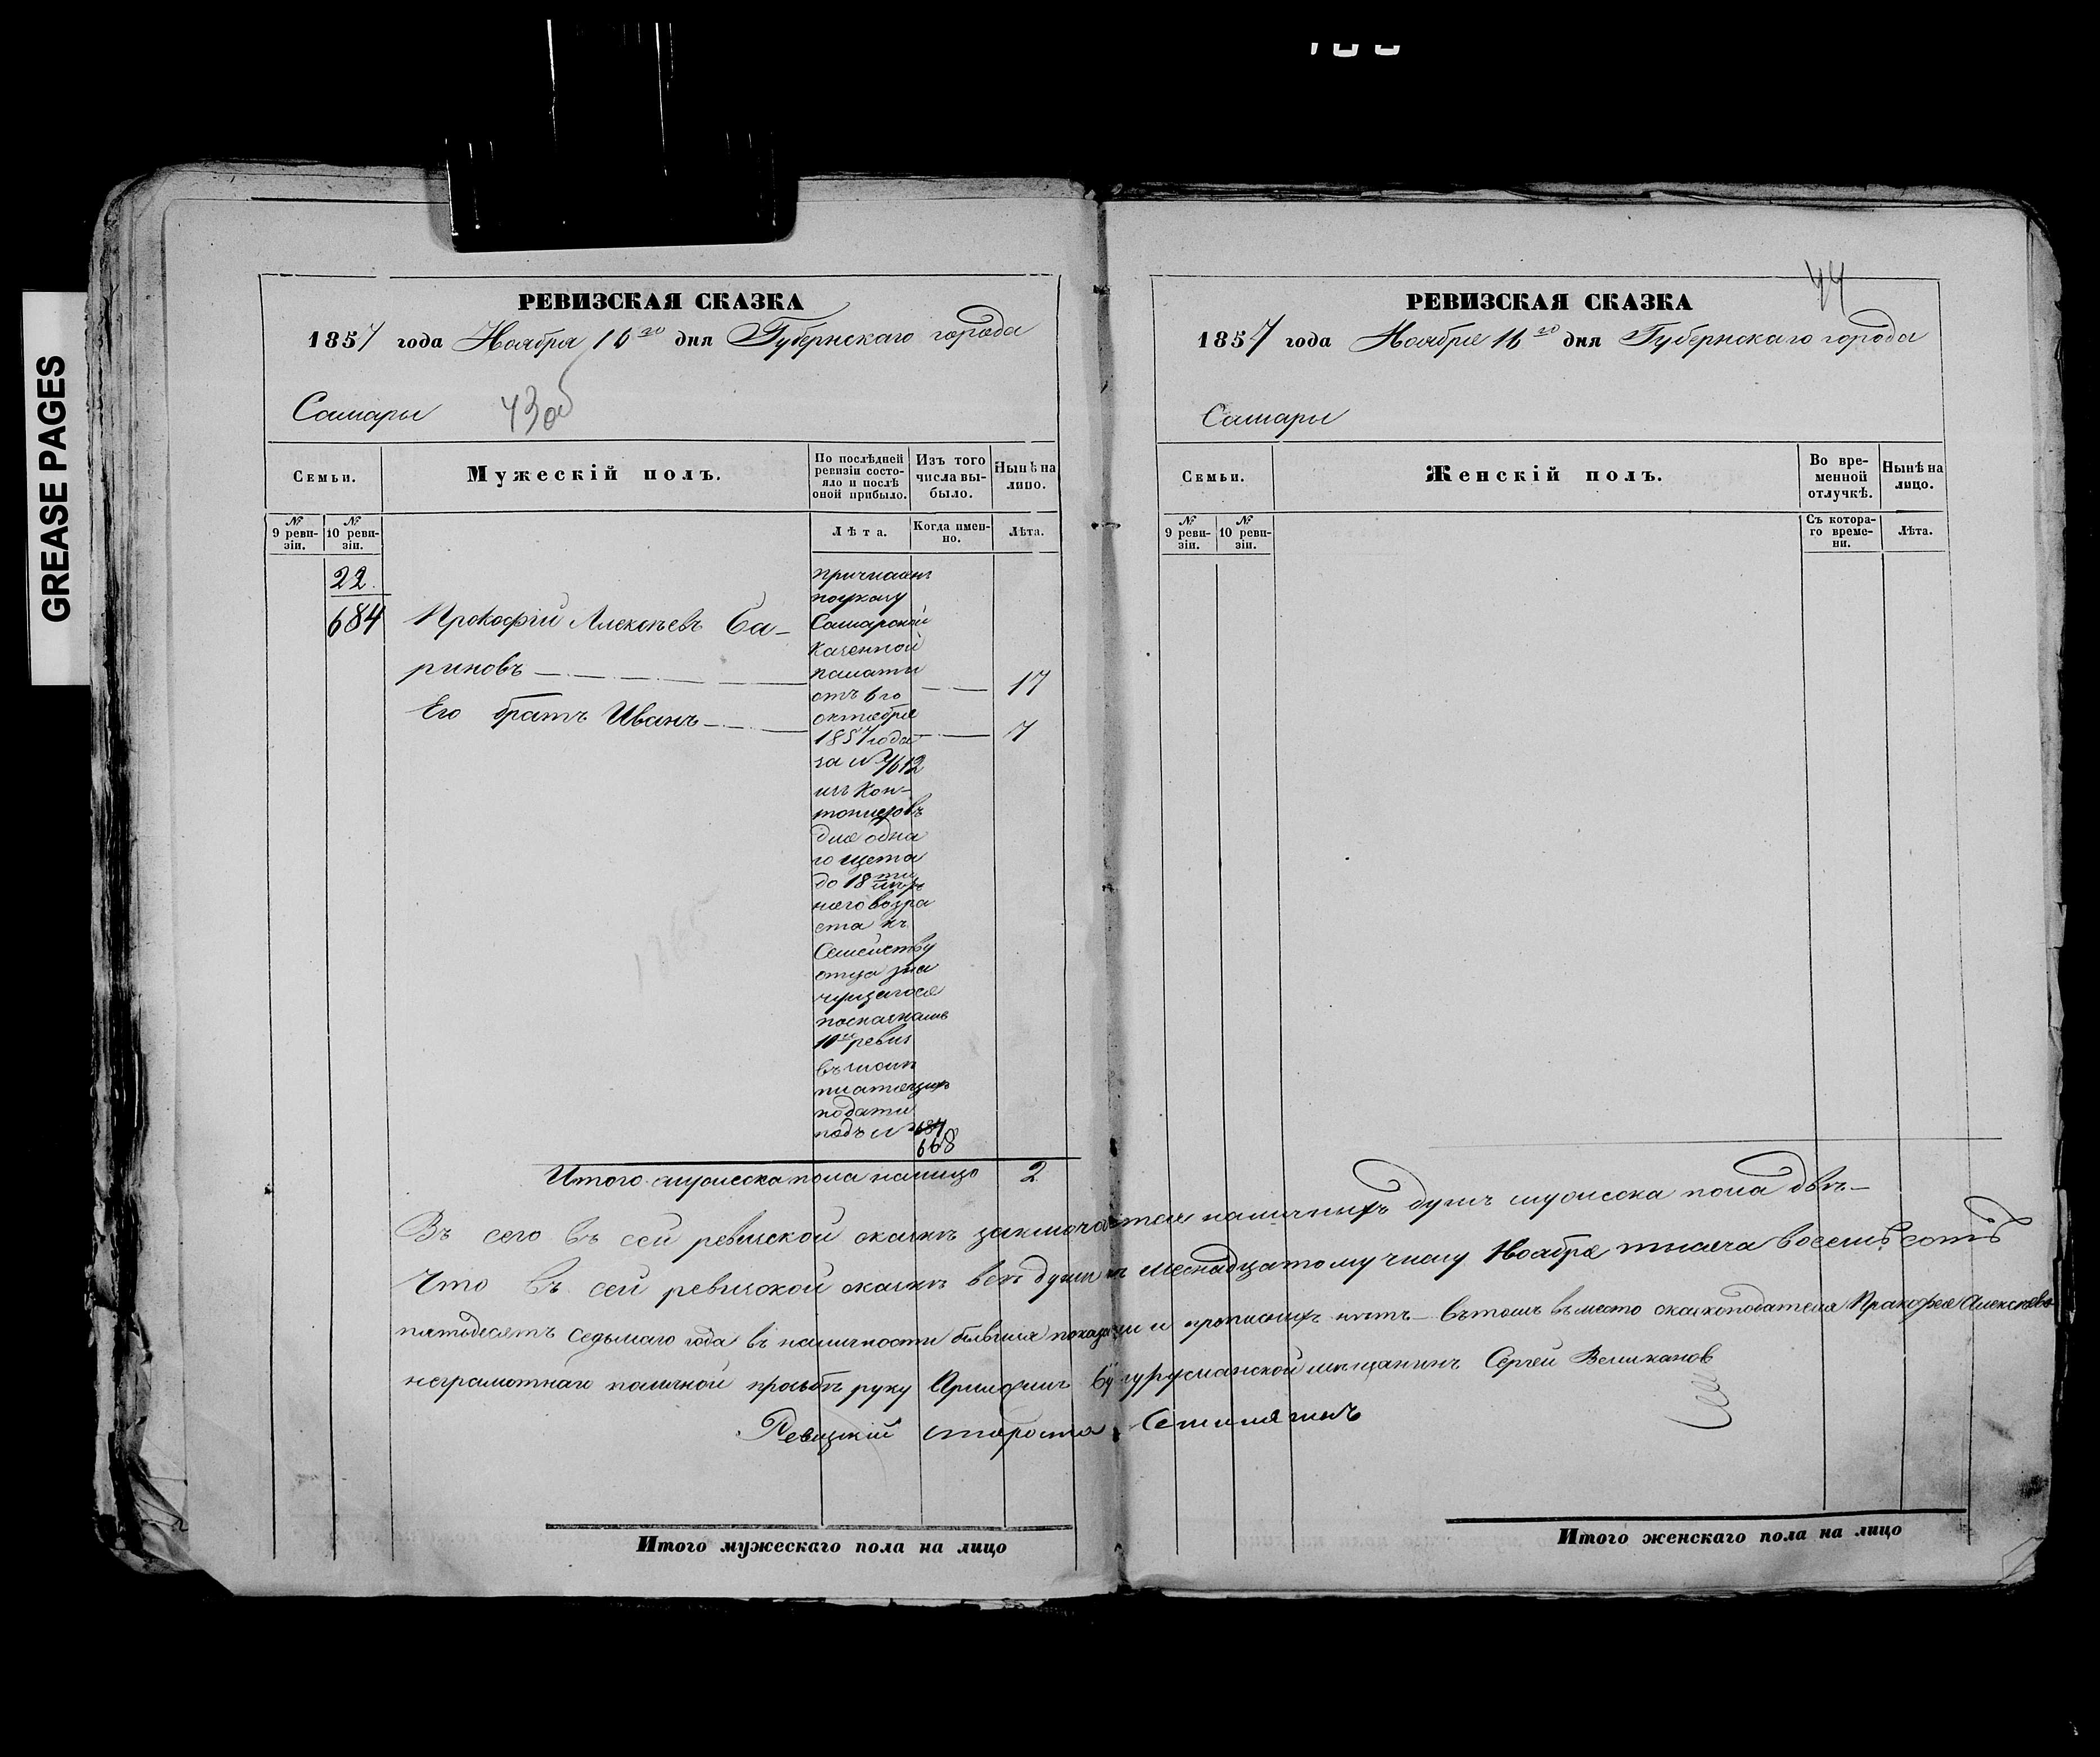 GREASE PAGES
РЕВИЗСКАЯ СКАЗКА
1857 года Ноября 16го дня Губернскаго города
Самары 43об
Семьи.
Мужескій полъ.
По послѣдней ревизіи состояло и послѣ оной прибыло.
Изъ того числа выбыло.
Нынѣ на лицо.
№ 9 ревизіи.
№ 10 ревизіи.
Лѣта.
Когда именно.
Лѣта.
22
684
Прокофій Алексѣевъ Ба-
риновъ
17
Его братъ Иванъ
7
причислены
по указу
Самарской
Казенной
палаты
отъ 6го
октября
1857 года
за №
изъ Кон-
тонистовъ
для одна
го щета
до 18ти лѣт
няго возра
ста къ
Семейству
отца зна
чущагося
по сказкамъ
10й ревиз
въ числѣ
платящихъ
подати
подъ № 684
668
Итого мужеска пола налицо 2
44
РЕВИЗСКАЯ СКАЗКА
1857 года Ноября 16го дня Губернскаго города
Самары
Семьи.
Женскій полъ.
Во временной отлучкѣ.
Нынѣ на лицо.
№ 9 ревизіи.
№ 10 ревизіи.
Съ котораго времени.
Лѣта.
сего въ сей ревизской сказкѣ заключается наличныхъ душъ мужеска пола двѣ
Что въ сей ревизской сказкѣ всѣ души къ шеснадцатому числу Ноября тысяча восемь сотъ
пятьдесятъ седьмаго года въ наличности бывшия показаны и прописныхъ нѣтъ въ томъ вместо сказкоподателя Пракофея Алексѣева
неграмотнаго по личной прозьбѣ руку приложилъ Бугурусланской мѣщанинъ Сергей Великанов
Ревизкий староста
Итого мужескаго пола на лицо
Итого женскаго пола на лицо